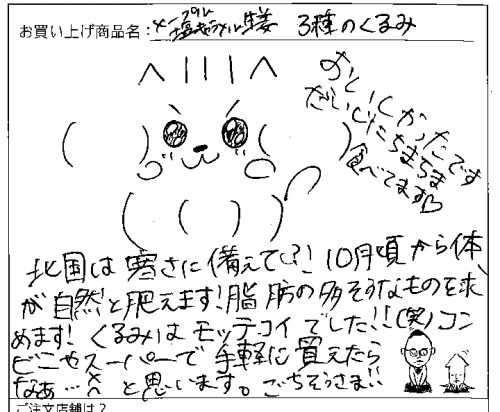 お買い上げ商品名：メープル 塩キャラメル 生姜 3種のくるみ
おいしかったです
だいじにちまちま
食べてます♡
北国は寒さに備えて!?！10月頃から体
が自然と肥えます！脂肪の多そうなものを求
めます！くるみはモッテコイでした!!(笑)コン
ビニやスーパーで手軽に買えたら
なぁ…と思います。ごちそうさま!!
ご注文店舗は？